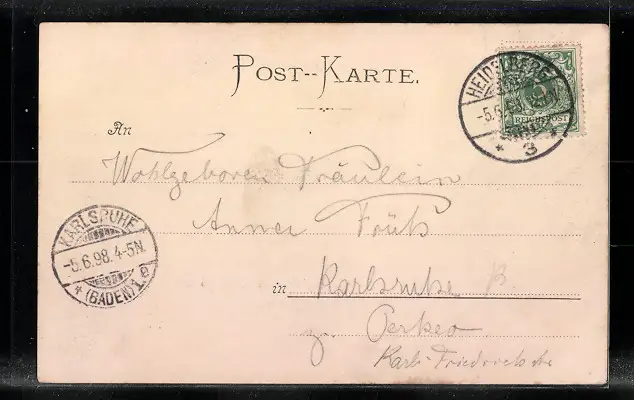 POST-KARTE.
HEIDELBERG
-5.6.98.
* 3 *
REICHSPOST
An
Wohlgeboren Fräulein
Anna Früh
KARLSRUHE
-5.6.98.4-5N.
* (BADEN) 1.
in Karlsruhe B
z. Perkeo
Karl-Friedrichstr